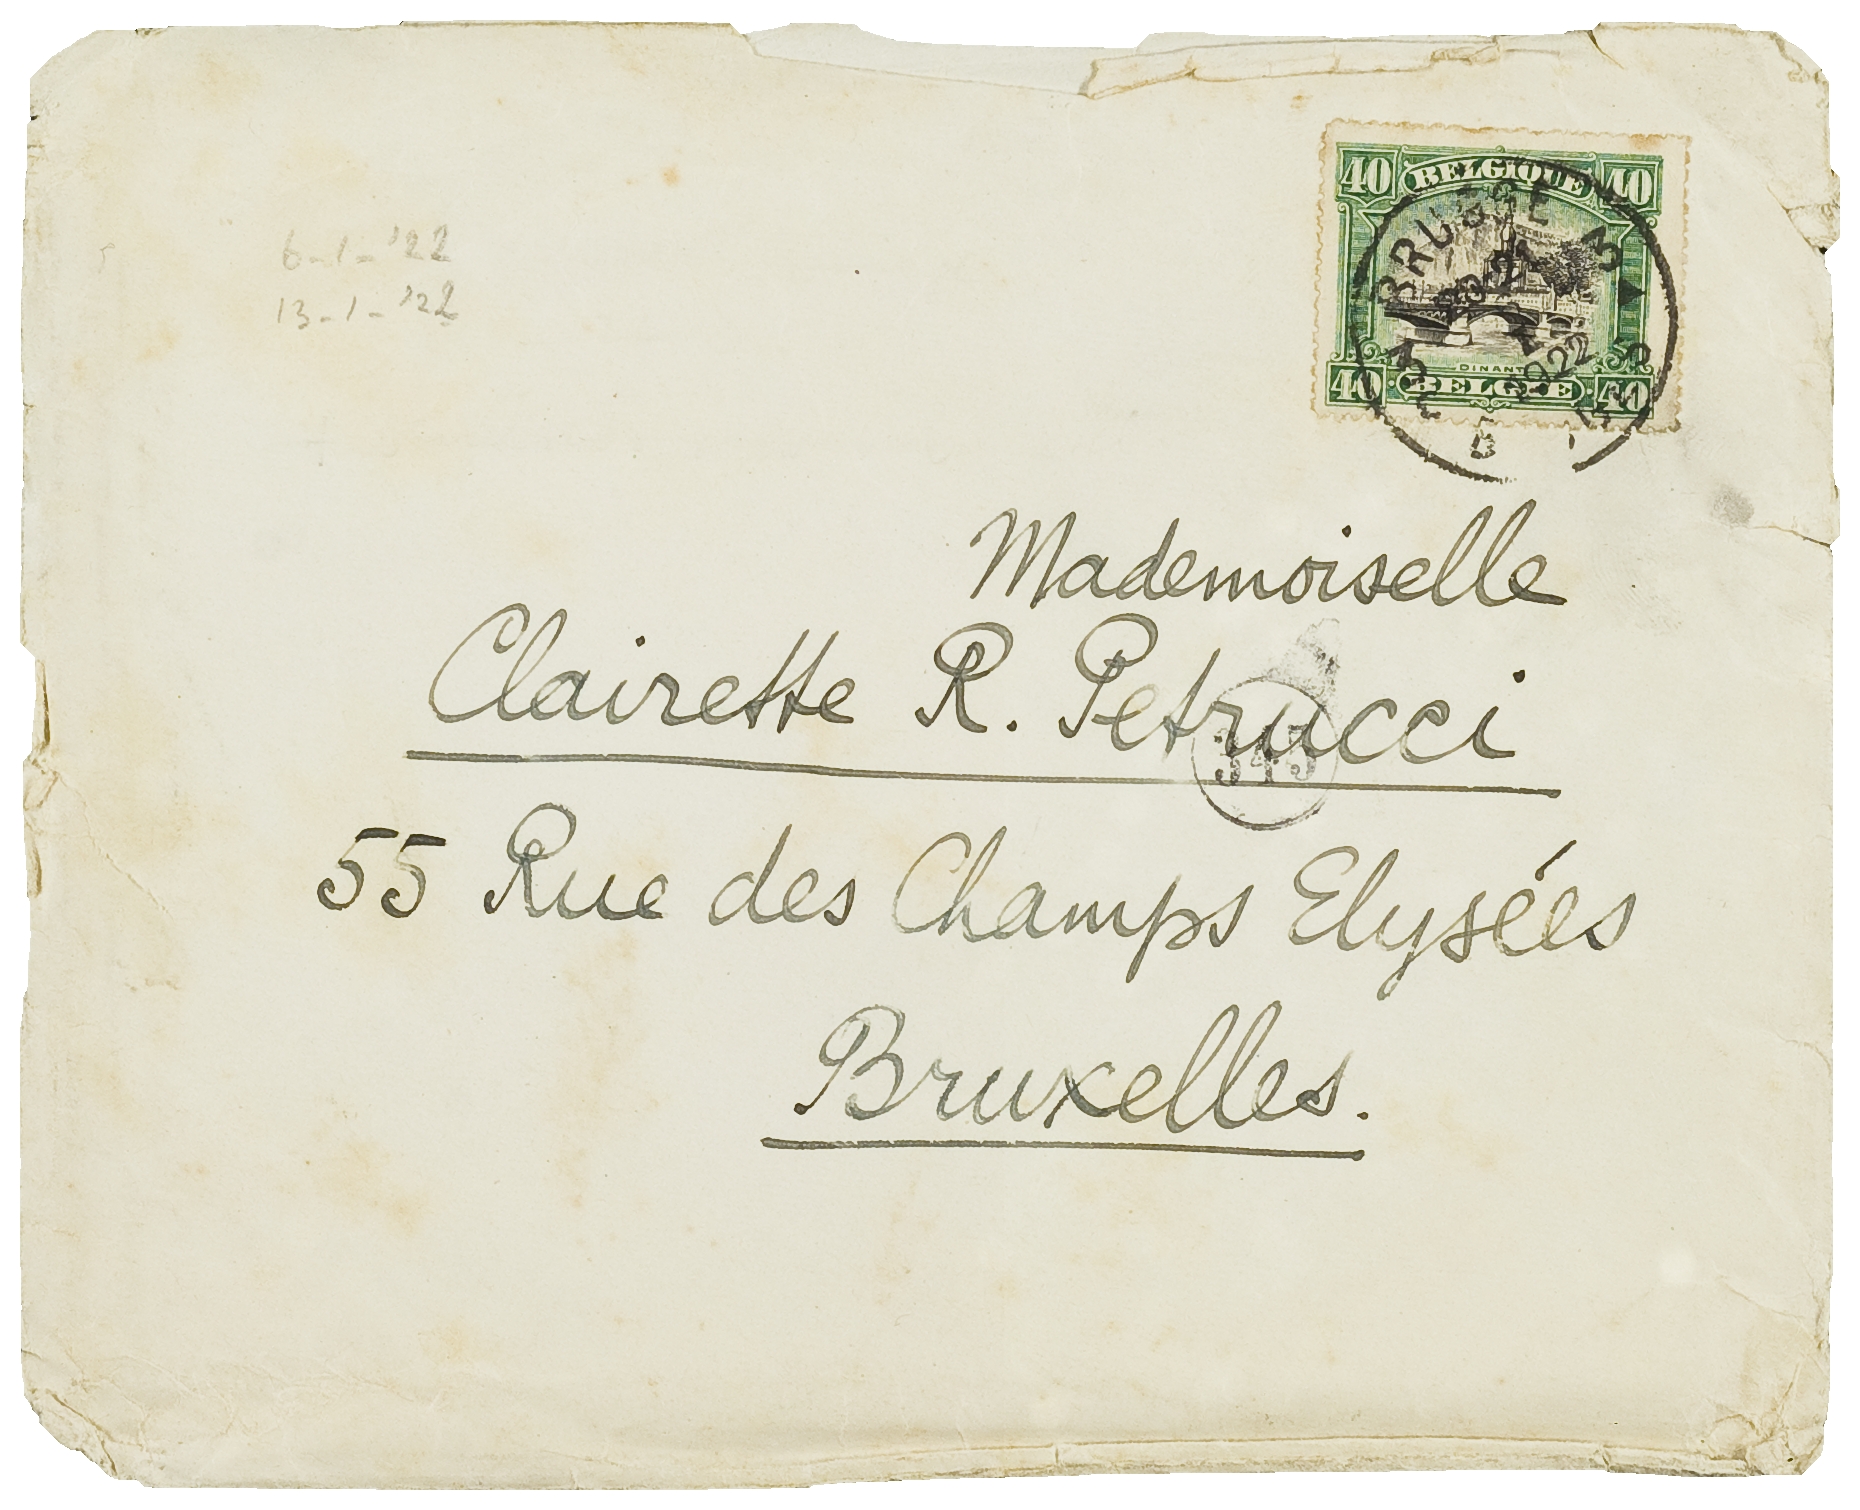 6-1-'22
13-1-'22
40 BELGIQUE 40
DINANT
40 BELGIË 40
BRUGGE 3
20-21
1922
BRUGES
Mademoiselle
Clairette R. Petrucci
345
55 Rue des Champs Elysées
Bruxelles.